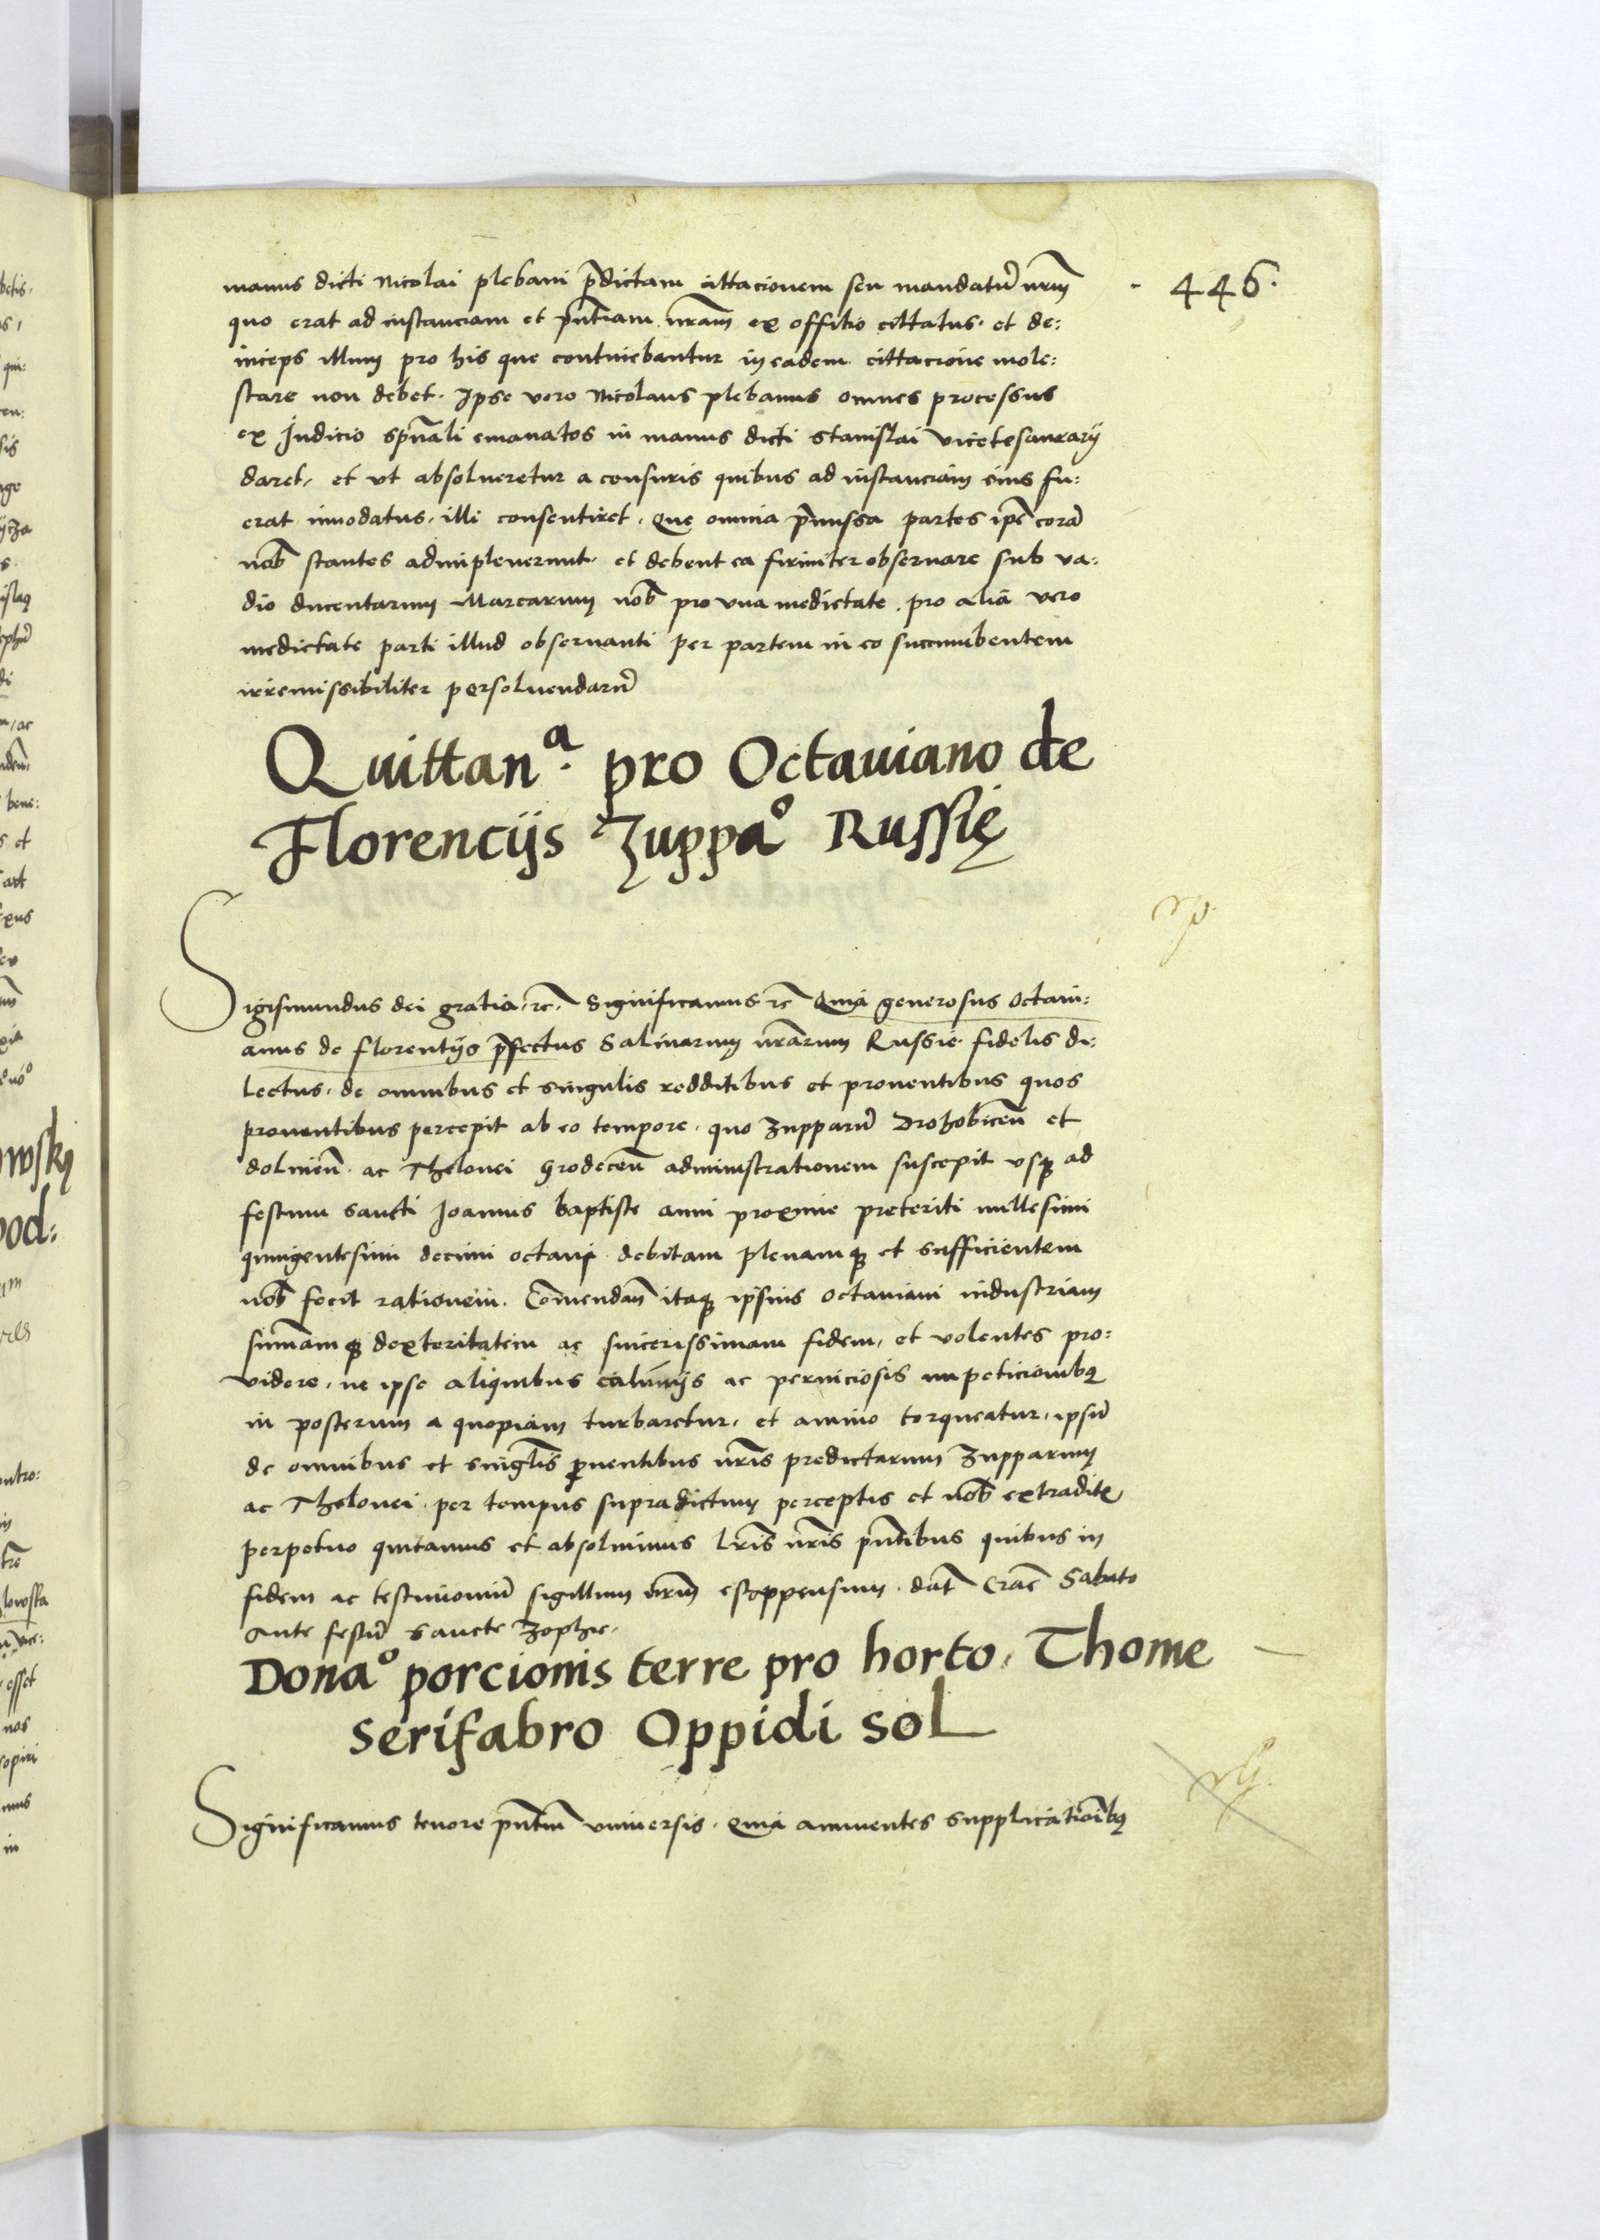 446.
manus dicti Nicolai plebani p̄dictam cittacionem seu mandatū nr̄m
quo erat ad instanciam et pn̄tiam nr̄am ex offitio cittatus. et de:
inceps illum pro his que continebantur in eadem cittacione mole:
stare non debet. Ipse vero Nicolaus plebanus omnes processus
ex Judicio spūali emanatos in manus dicti Stanislai vicetesaurarij
daret, et ut absolveretur a censuris quibus ad instanciam eius fu:
erat innodatus, illi consentiret. Que omnia p̄missa partes ip̄e corā
nob̄ stantes adimpleverunt. et debent ea firmiter observare sub va:
dio ducentarum Marcarum nob̄ pro una medietate, pro alia vero
medietate parti illud observanti per partem in eo succumbentem
irremissibiliter persolvendarū
Quittanᵃ. pro Octaviano de
Florencijs Zuppaº Russię
Sigismundus dei gratia. rc̄. Significamus rc̄ Quia generosus Octavi:
anus de florentijs p̄fectus Salinarum nr̄arum Russie fidelis di:
lectus. de omnibus et singulis redditibus et proventibus quos
proventibus percepit ab eo tempore. quo Zupparū Drohobiceñ et
dolineñ. ac Thelonei Grodeceñ administrationem suscepit usq̨ ad
festum sancti Joannis baptiste anni proxime preteriti millesimi
quingentesimi decimi octavi debitam plenamq̨ et sufficientem
nob̄ fecit rationem. Com̄endan̄ itaq̨ ipsius Octaviani industriam
sum̄amq̨ dexteritatem ac sincerissimam fidem, et volentes pro:
videre, ne ipse aliquibus calum̄ijs ac perniciosis impeticionibꝫ
in posterum a quopiam turbaretur, et animo torqueatur, ipsū
de omnibus et singl̄is p̱ventibus nr̄is predictarum Zupparum
ac Thelonei. per tempus supradictum perceptis et nob̄ extradite
perpetuo quitamus et absolvimus Lr̄is nr̄is pn̄tibus quibus in
fidem ac testimoniū sigillum nr̄um est appensum. dat̄ Crac̄ Sabato
ante festū sancte Zophie.
Donaº porcionis terre pro horto, Thome
Serifabro Oppidi sol
Significamus tenore pn̄tiū universis. Quia annuentes supplicationibꝫ